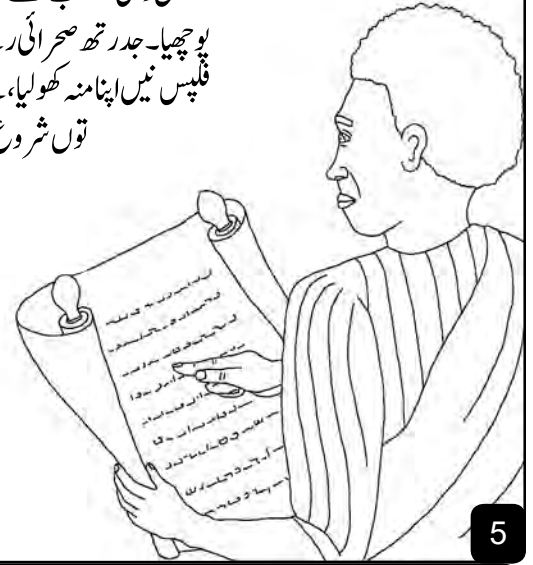 پوچھیا۔ جدرتھ صحرائی ر
فلپس نیں اپنا منہ کھولیا،
توں شروع
5